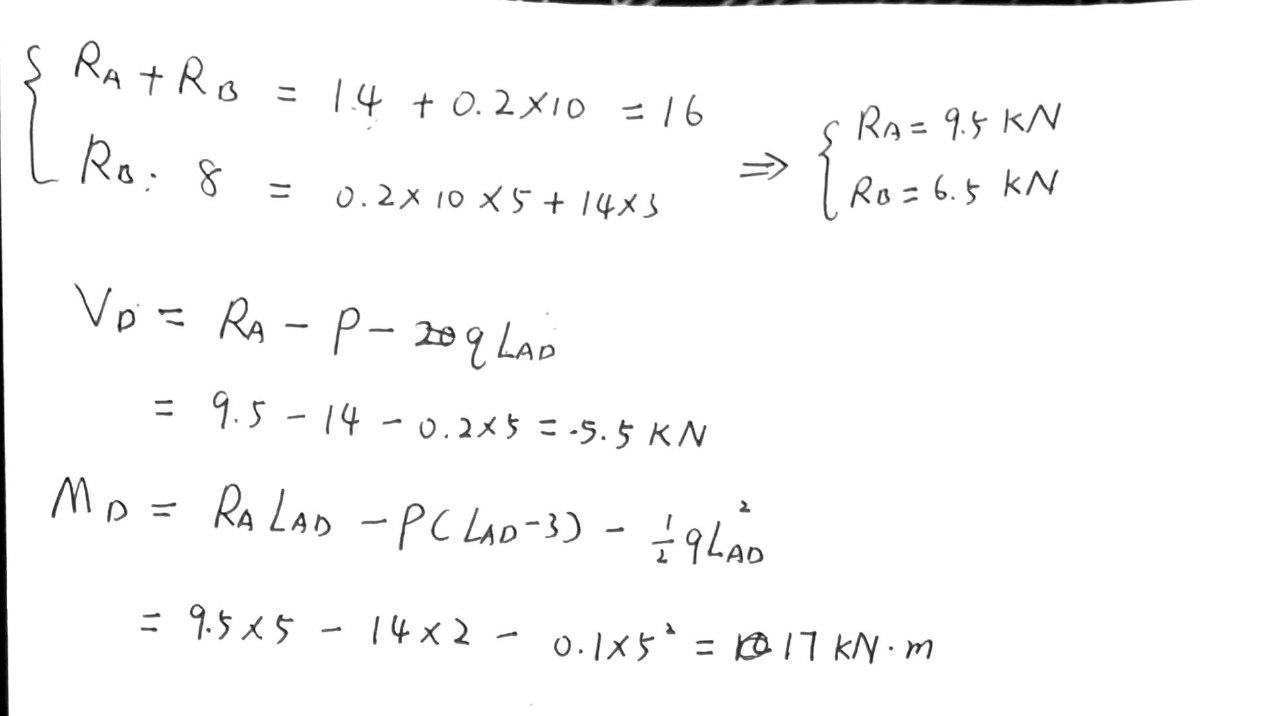 R_A + R_B = 14 + 0.2×10 = 16
R_B · 8 = 0.2×10×5 + 14×3
⇒ { R_A = 9.5 KN
R_B = 6.5 KN
V_D = R_A − P − qL_AD
= 9.5 − 14 − 0.2×5 = -5.5 KN
M_D = R_A L_AD − P(L_AD−3) − ½qL_AD²
= 9.5×5 − 14×2 − 0.1×5² = 17 KN·m